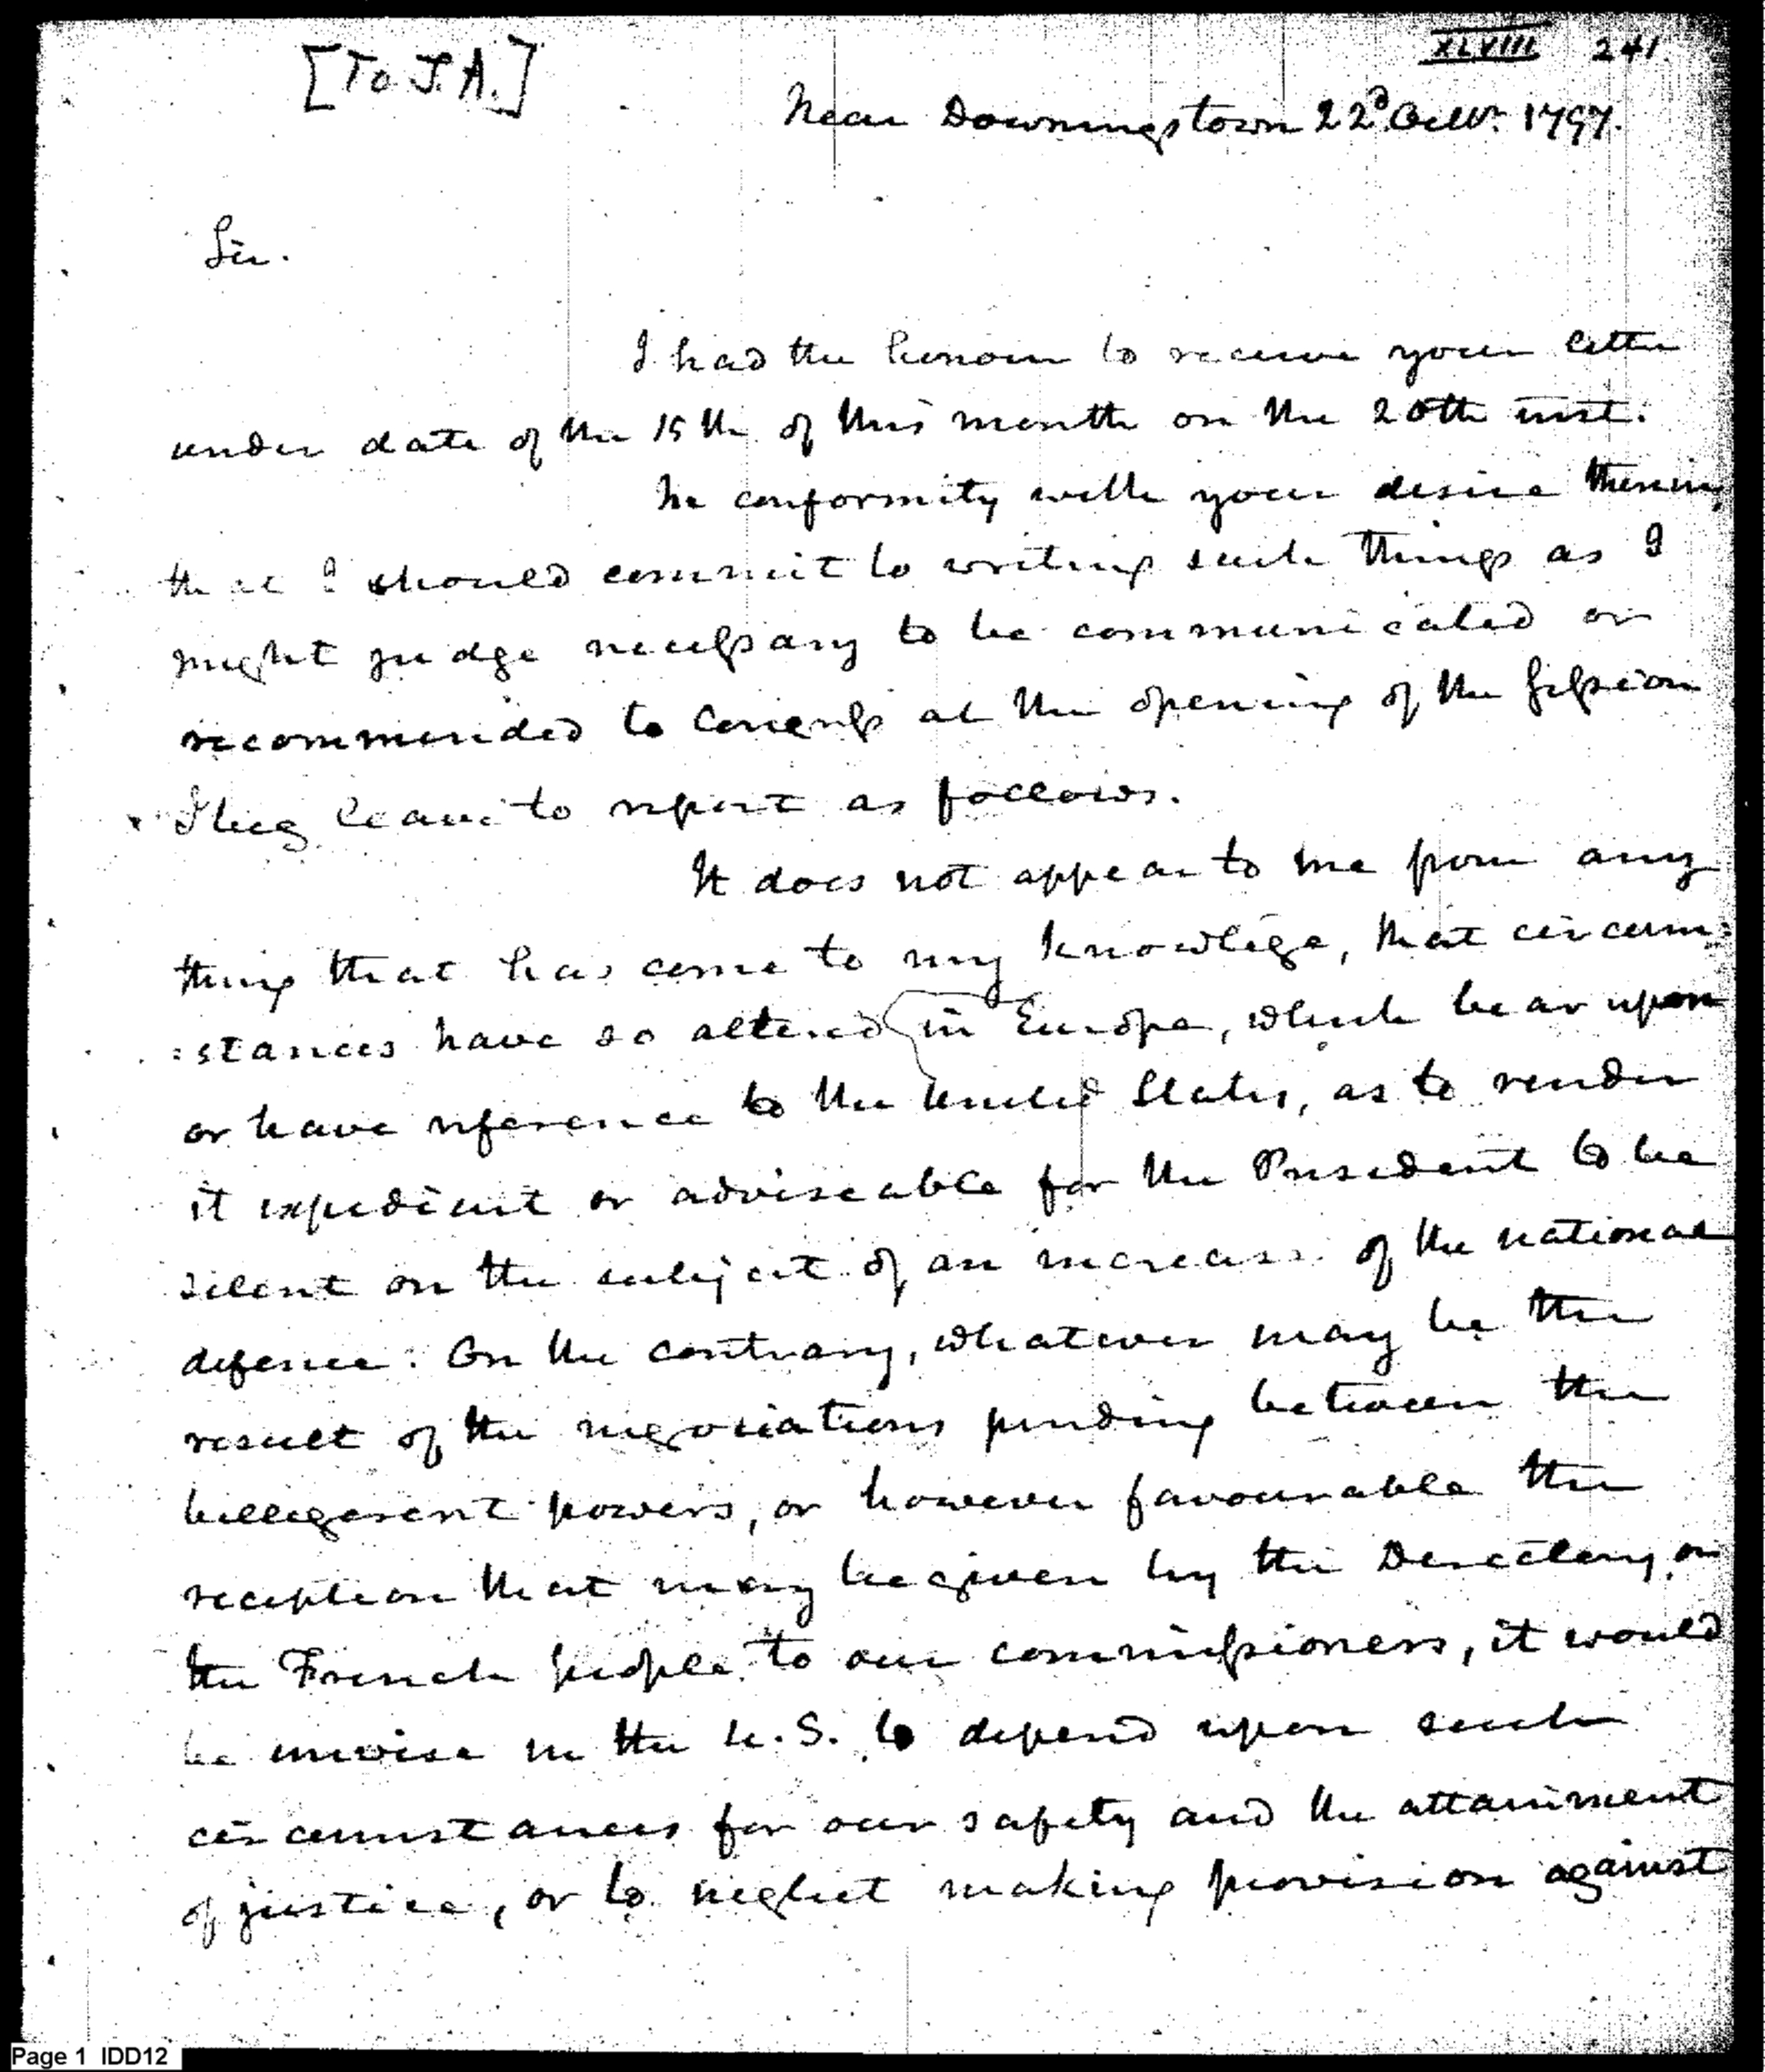 [To J.A.]
XLVIII 241.
Near Downingstown 22d. Octbr. 1797.
Sir.
I had the honour to receive your letter
under date of the 15th of this month on the 20th inst.
In conformity with your desire therein,
that I should commit to writing such things as I
might judge necessary to be communicated or
recommended to Congress at the opening of the session
I beg leave to report as follows.
It does not appear to me from any
thing that has come to my knowlege, that circum:
:stances have so altered in Europe, which bear upon
or have reference to the United States, as to render
it expedient or adviseable for the President to be
silent on the subject of an increase of the national
defence. On the contrary, whatever may be the
result of the negociations pending between the
belligerent powers, or however favourable the
reception that may be given by the Directory, or
the French people, to our commissioners, it would
be unwise in the U.S. to depend upon such
circumstances for our safety and the attainment
of justice, or to neglect making provision against
Page 1 IDD12